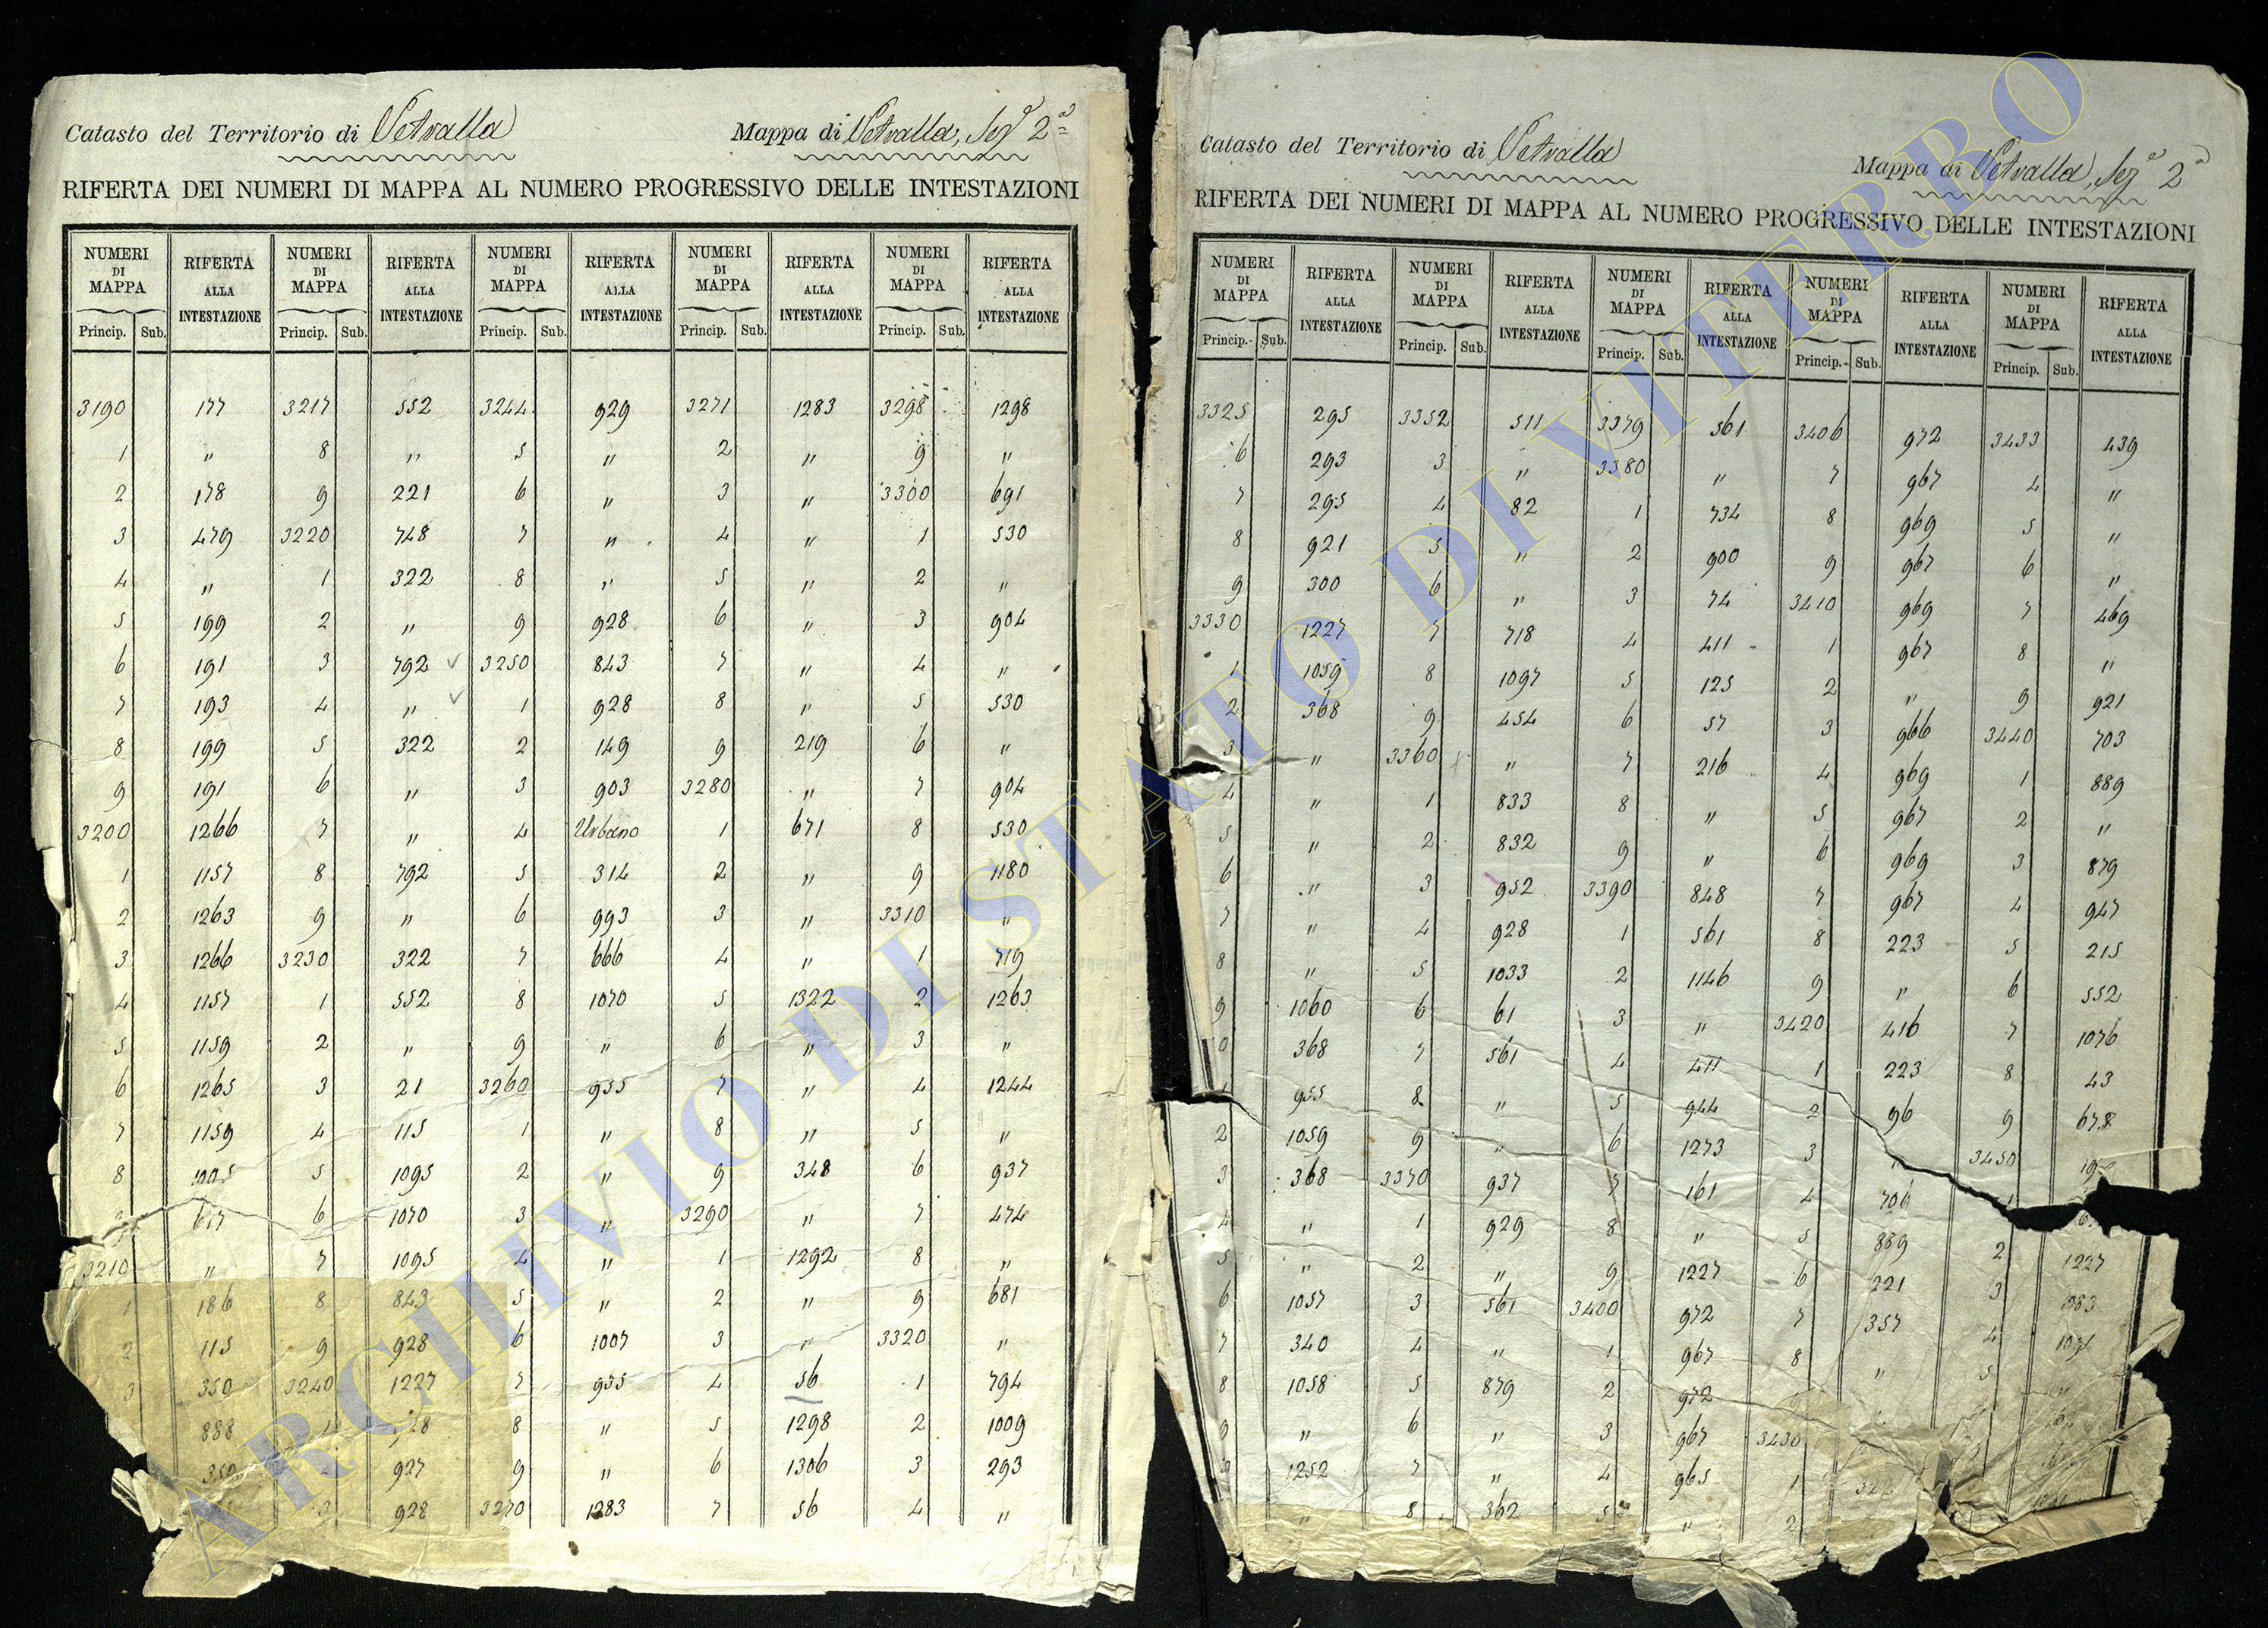 Catasto del Territorio di Vetralla Mappa di Vetralla, Sez.ª 2ª
RIFERTA DEI NUMERI DI MAPPA AL NUMERO PROGRESSIVO DELLE INTESTAZIONI
NUMERI DI MAPPA RIFERTA ALLA INTESTAZIONE NUMERI DI MAPPA RIFERTA ALLA INTESTAZIONE NUMERI DI MAPPA RIFERTA ALLA INTESTAZIONE NUMERI DI MAPPA RIFERTA ALLA INTESTAZIONE NUMERI DI MAPPA RIFERTA ALLA INTESTAZIONE
Princip. Sub. Princip. Sub. Princip. Sub. Princip. Sub. Princip. Sub.
3190 177 3217 552 3244 929 3271 1283 3298 1298
1 " 8 " 5 " 2 " 9 "
2 178 9 221 6 " 3 " 3300 691
3 479 3220 748 7 " 4 " 1 530
4 " 1 322 8 " 5 " 2 "
5 199 2 " 9 928 6 " 3 904
6 191 3 792 3250 843 7 " 4 "
7 193 4 " 1 928 8 " 5 530
8 199 5 322 2 149 9 219 6 "
9 191 6 " 3 903 3280 " 7 904
3200 1266 7 " 4 Urbano 1 671 8 530
1 1157 8 792 5 314 2 " 9 1180
2 1263 9 " 6 993 3 " 3310 "
3 1266 3230 322 7 666 4 " 1 719
4 1157 1 552 8 1070 5 1322 2 1263
5 1159 2 " 9 " 6 " 3 "
6 1265 3 21 3260 955 7 " 4 1244
7 1159 4 115 1 " 8 " 5 "
8 5 1095 2 " 9 348 6 937
617 6 1070 3 " 3290 " 7 474
3210 " 7 1095 4 " 1 1292 8 "
1 186 8 843 5 " 2 " 9 681
2 115 9 928 6 1007 3 " 3320 "
3 350 3240 1227 7 955 4 56 1 794
888 1 928 8 " 5 1298 2 1009
350 927 9 " 6 1306 3 293
3 928 3270 1283 7 56 4 "
Catasto del Territorio di Vetralla Mappa di Vetralla, Sez.ª 2ª
RIFERTA DEI NUMERI DI MAPPA AL NUMERO PROGRESSIVO DELLE INTESTAZIONI
NUMERI DI MAPPA RIFERTA ALLA INTESTAZIONE NUMERI DI MAPPA RIFERTA ALLA INTESTAZIONE NUMERI DI MAPPA RIFERTA ALLA INTESTAZIONE NUMERI DI MAPPA RIFERTA ALLA INTESTAZIONE NUMERI DI MAPPA RIFERTA ALLA INTESTAZIONE
Princip. Sub. Princip. Sub. Princip. Sub. Princip. Sub. Princip. Sub.
3325 295 3352 511 3379 561 3406 972 3433 439
6 293 3 " 3380 " 7 967 4 "
7 295 4 82 1 734 8 969 5 "
8 921 5 " 2 900 9 967 6 "
9 300 6 " 3 74 3410 969 7 469
3330 1227 7 718 4 411 1 967 8 "
1 1059 8 1097 5 125 2 " 9 921
2 368 9 454 6 57 3 966 3440 703
3 " 3360 " 7 216 4 969 1 889
4 " 1 833 8 " 5 967 2 "
5 " 2 832 9 " 6 969 3 879
6 " 3 952 3390 848 7 967 4 947
7 " 4 928 1 561 8 223 5 215
8 " 5 1033 2 1146 9 " 6 552
9 1060 6 61 3 " 3420 416 7 1076
0 368 7 561 4 411 1 223 8 43
1 955 8 " 5 944 2 96 9 678
2 1059 9 " 6 1273 3 " 3450
3 368 3370 937 7 161 4 706 1
4 " 1 929 8 " 5 889 2 1227
5 " 2 " 9 1227 6 221 3 1083
6 1057 3 561 3400 972 7 357 4
7 340 4 " 1 967 8 " 5 "
8 1058 5 879 2 972
9 " 6 " 3 967 3430
1252 7 " 4 965 1 322
" 8 362 5 " 2
ARCHIVIO DI STATO DI VITERBO